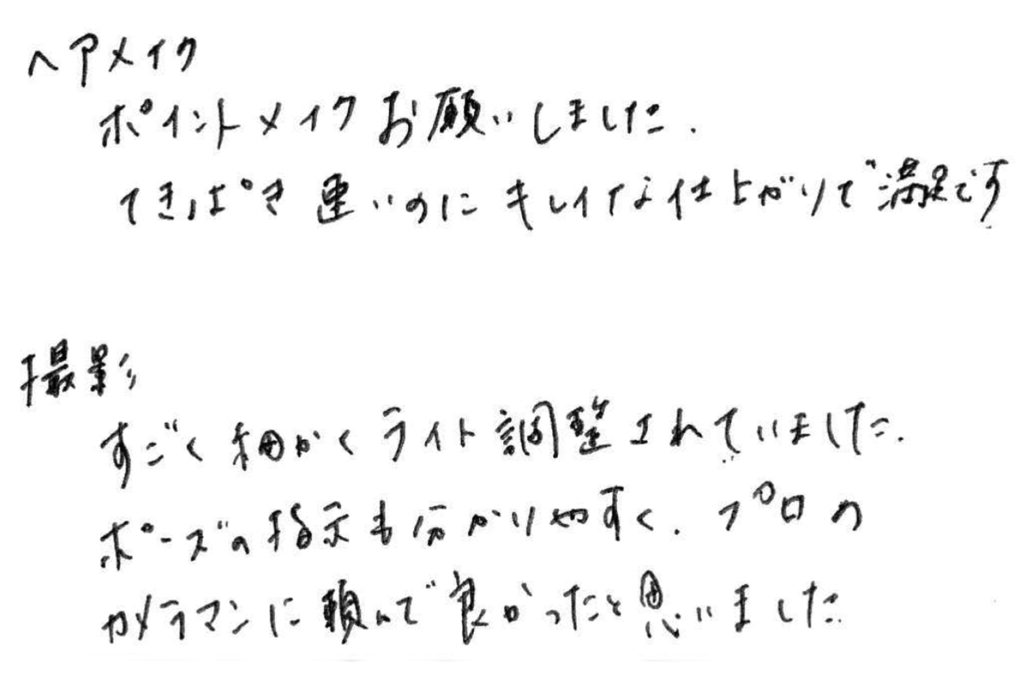 ヘアメイク
ポイントメイクお願いしました.
てきぱき速いのにキレイな仕上がりで満足です
撮影
すごく細かくライト調整されていました.
ポーズの指示も分かりやすく、プロの
カメラマンに頼んで良かったと思いました